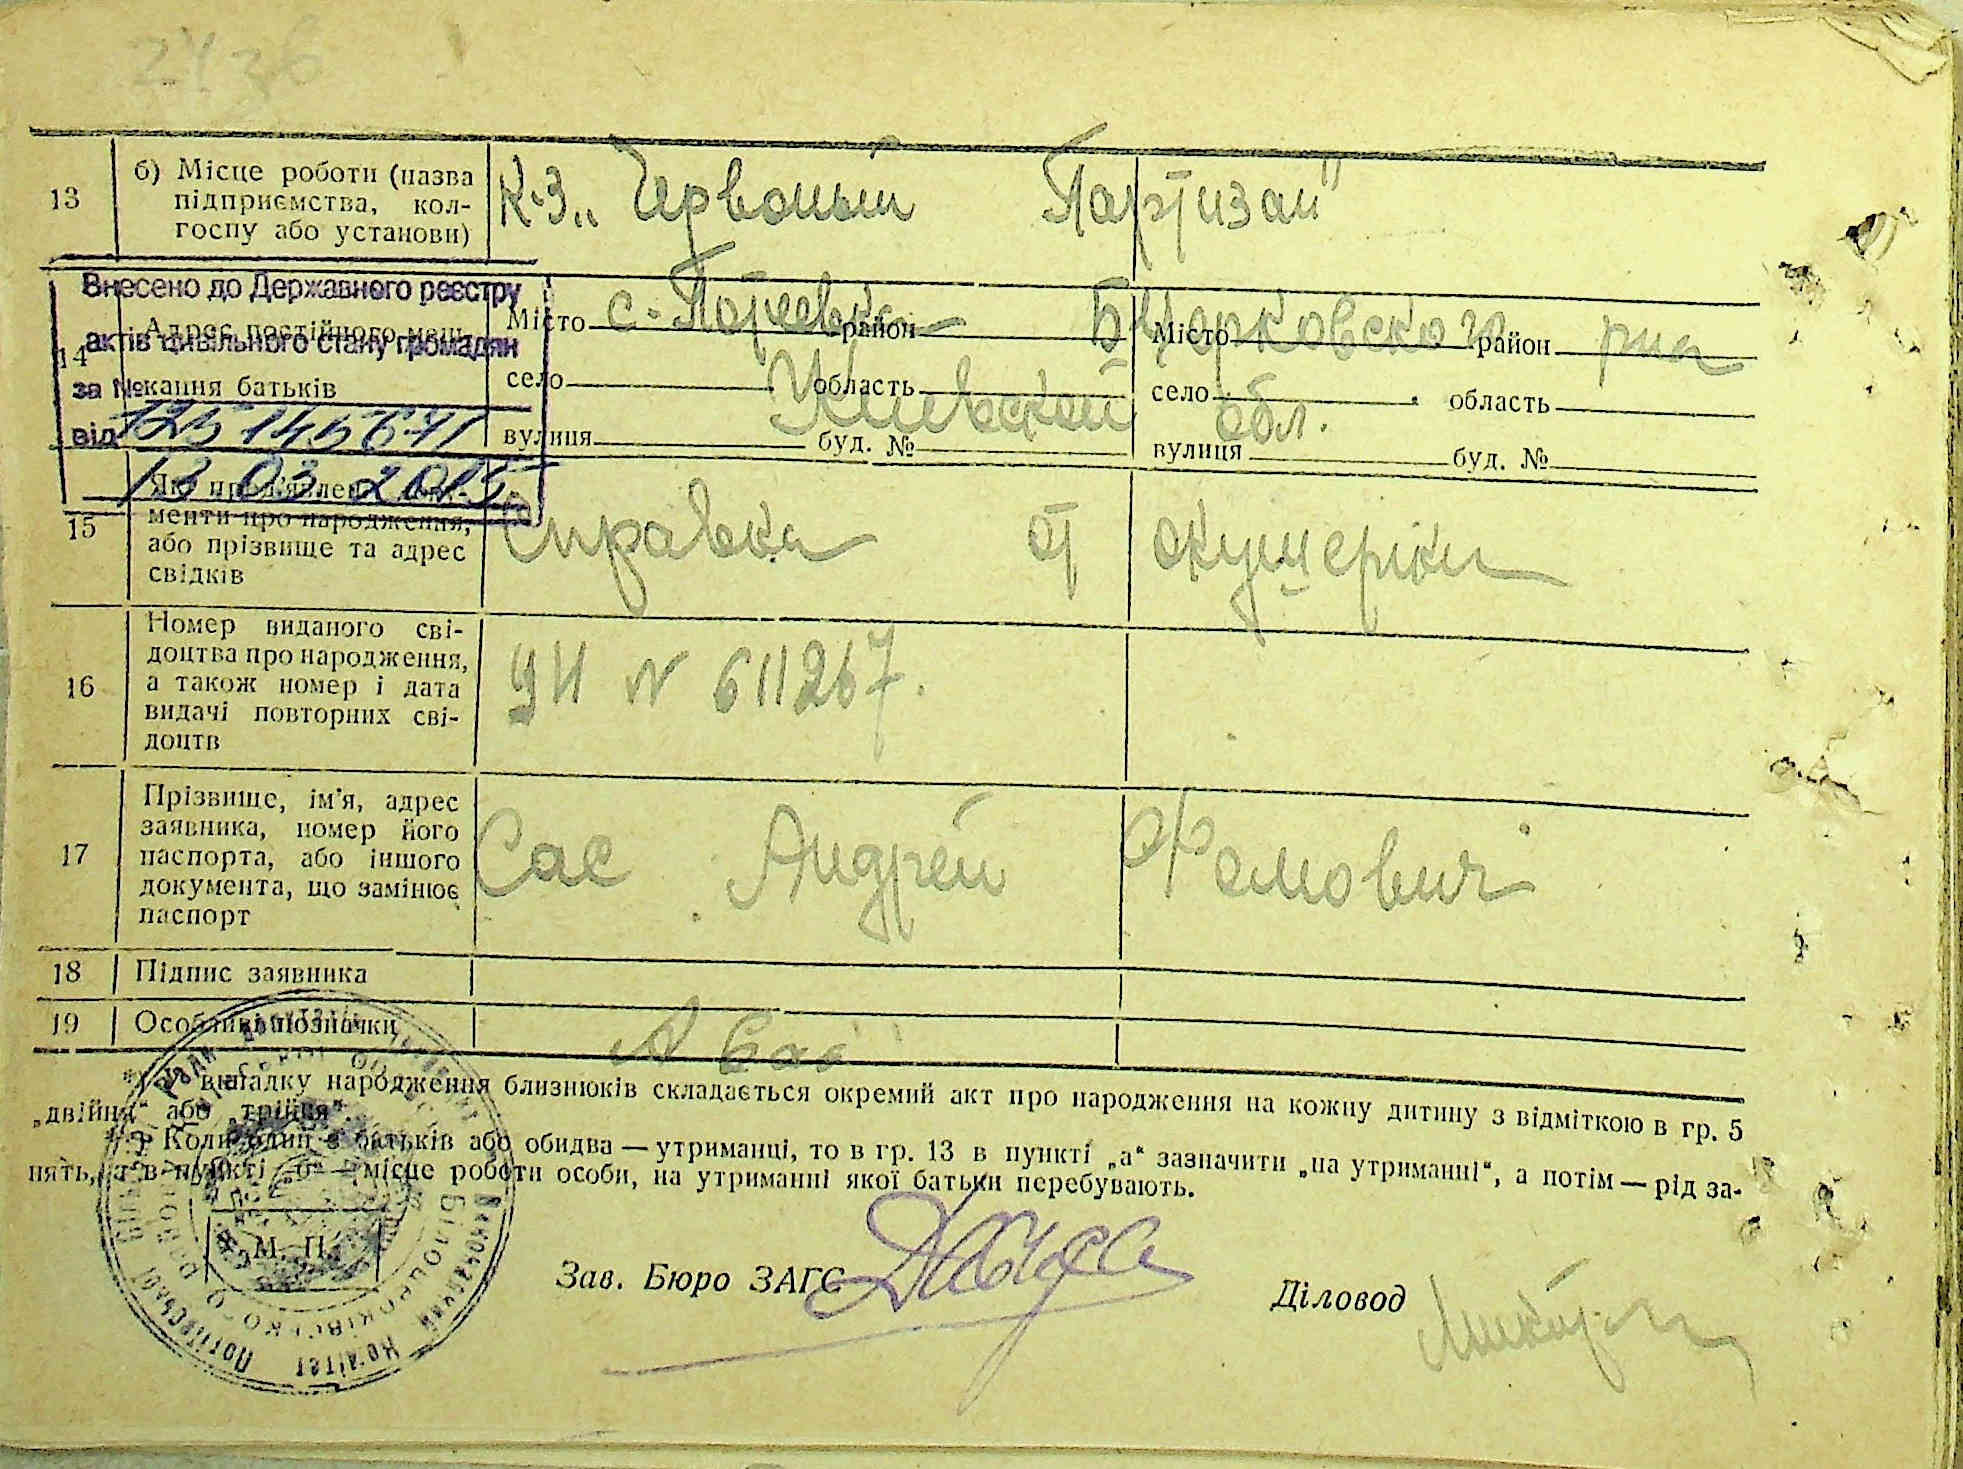 2436
13
б) Місце роботи (назва
підприємства, кол-
госпу або установи)
К-З „Червоный Партизан"
Внесено до Державного реєстру
актів цивільного стану громадян
за №
від 12514567
13 03 2015
14
Адрес постійного меш-
кання батьків
Місто с. район Місто район р-на
село Киевской область село обл. область
вулиця буд. № вулиця буд. №
15
Які пред'явлені доку-
менти про народження,
або прізвище та адрес
свідків
Справка от акушерки
16
Номер виданого сві-
доцтва про народження,
а також номер і дата
видачі повторних сві-
доцтв
N 611267.
17
Прізвище, ім'я, адрес
заявника, номер його
паспорта, або іншого
документа, що замінює
паспорт
Сас Андрей Фомович
18
Підпис заявника
19
Особливі позначки
А Сас
*) У випадку народження близнюків складається окремий акт про народження на кожну дитину з відміткою в гр. 5
„двійня" або „трійня".
Коли один з батьків або обидва — утриманці, то в гр. 13 в пункті „а" зазначити „на утриманні", а потім — рід за-
нять, а в пункті „б" — місце роботи особи, на утриманні якої батьки перебувають.
М. П.
Зав. Бюро ЗАГС
Діловод